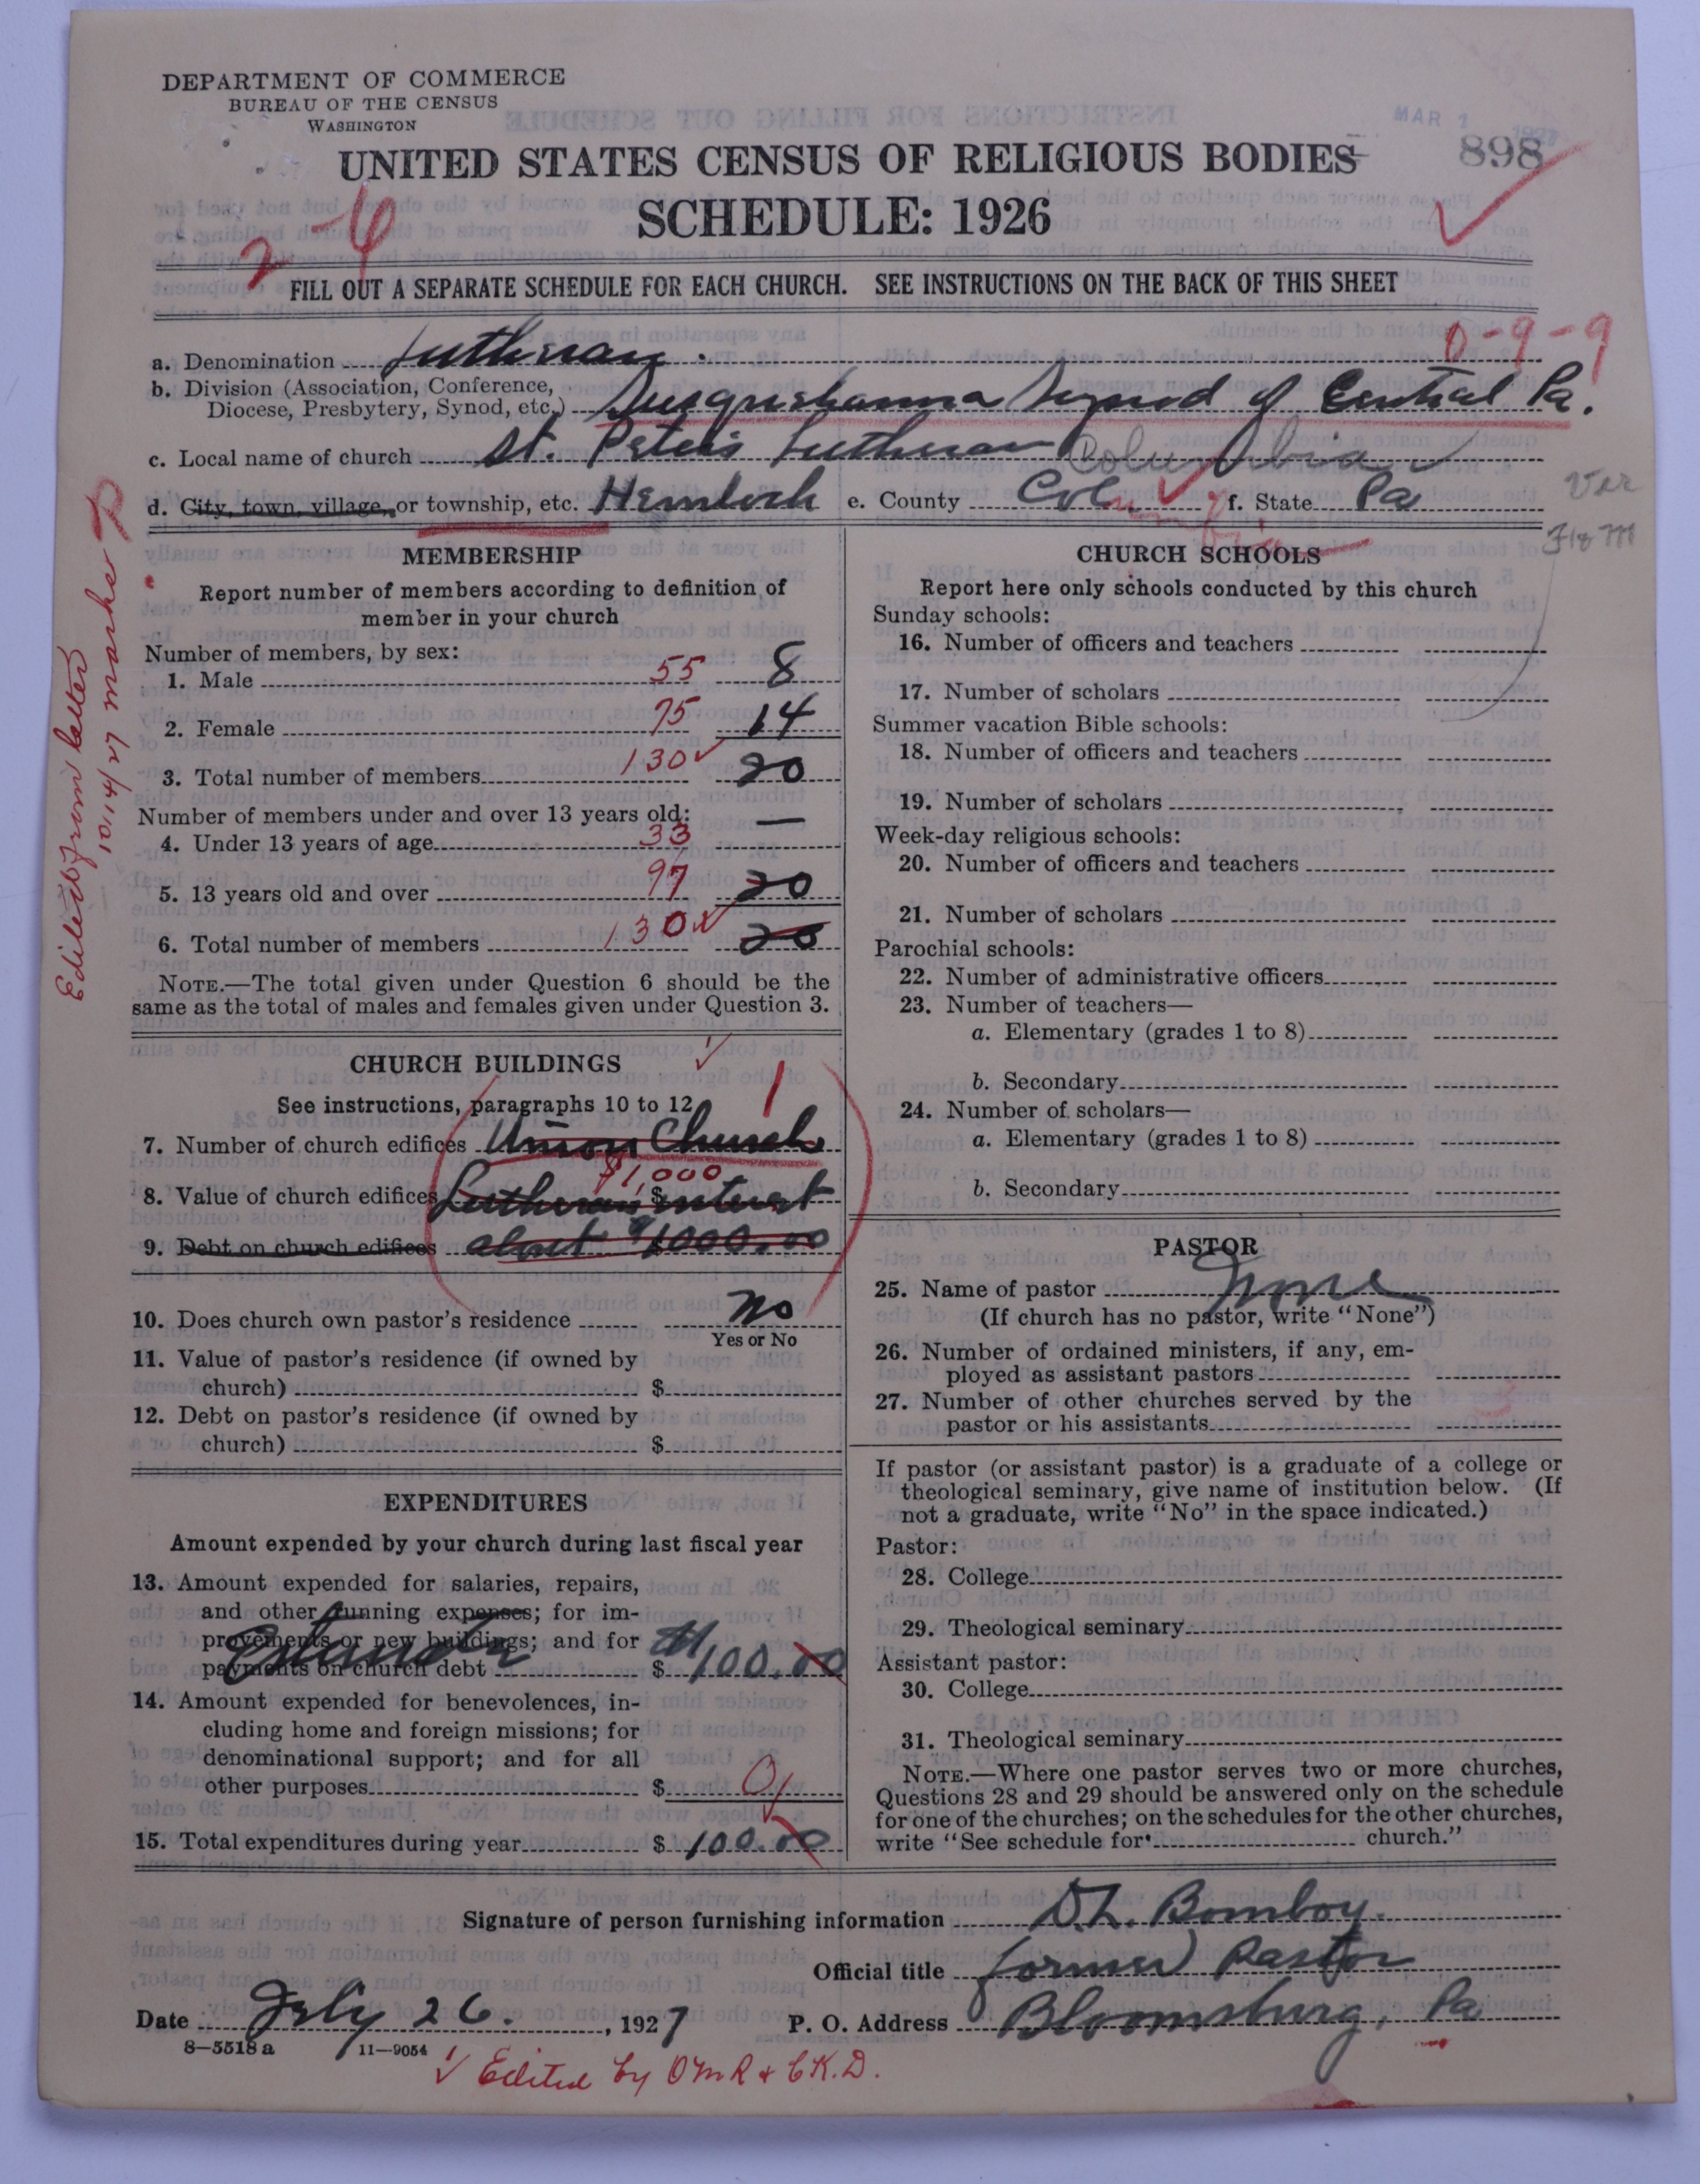 DEPARTMENT OF COMMERCE
BUREAU OF THE CENSUS
WASHINGTON
MAR 1
898
UNITED STATES CENSUS OF RELIGIOUS BODIES
SCHEDULE: 1926
2
FILL OUT A SEPARATE SCHEDULE FOR EACH CHURCH. SEE INSTRUCTIONS ON THE BACK OF THIS SHEET
0-9-9
a. Denomination Lutheran.
b. Division (Association, Conference,
Diocese, Presbytery, Synod, etc.) Susquehanna Synod of Central Pa.
c. Local name of church St. Peter's Lutheran Columbia
d. City, town, village, or township, etc. Hemlock e. County Col f. State Pa
Ver
Edited from letter
10/14/27 marked P
MEMBERSHIP
Report number of members according to definition of
member in your church
Number of members, by sex:
1. Male 55 8
2. Female 75 14
3. Total number of members 130 20
Number of members under and over 13 years old:
4. Under 13 years of age 33 —
5. 13 years old and over 97 20
6. Total number of members 130 20
NOTE.—The total given under Question 6 should be the
same as the total of males and females given under Question 3.
CHURCH BUILDINGS
See instructions, paragraphs 10 to 12
1
7. Number of church edifices Union Church
$1,000
8. Value of church edifices Lutheran $ interest
9. Debt on church edifices about $1000.00
10. Does church own pastor's residence No
Yes or No
11. Value of pastor's residence (if owned by
church) $
12. Debt on pastor's residence (if owned by
church) $
EXPENDITURES
Amount expended by your church during last fiscal year
13. Amount expended for salaries, repairs,
and other running expenses; for im-
provements or new buildings; and for
payments on church debt $ 100.00
14. Amount expended for benevolences, in-
cluding home and foreign missions; for
denominational support; and for all
other purposes $ 0
15. Total expenditures during year $ 100.00
CHURCH SCHOOLS
Report here only schools conducted by this church
Sunday schools:
16. Number of officers and teachers
17. Number of scholars
Summer vacation Bible schools:
18. Number of officers and teachers
19. Number of scholars
Week-day religious schools:
20. Number of officers and teachers
21. Number of scholars
Parochial schools:
22. Number of administrative officers
23. Number of teachers—
a. Elementary (grades 1 to 8)
b. Secondary
24. Number of scholars—
a. Elementary (grades 1 to 8)
b. Secondary
PASTOR
25. Name of pastor None
(If church has no pastor, write "None")
26. Number of ordained ministers, if any, em-
ployed as assistant pastors
27. Number of other churches served by the
pastor or his assistants
If pastor (or assistant pastor) is a graduate of a college or
theological seminary, give name of institution below. (If
not a graduate, write "No" in the space indicated.)
Pastor:
28. College
29. Theological seminary
Assistant pastor:
30. College
31. Theological seminary
NOTE.—Where one pastor serves two or more churches,
Questions 28 and 29 should be answered only on the schedule
for one of the churches; on the schedules for the other churches,
write "See schedule for church."
Signature of person furnishing information D.L. Bomboy.
Official title former Pastor
Date July 26. , 1927 P. O. Address Bloomsburg, Pa
8—5518 a 11—9054
Edited by OMR & CK.D.